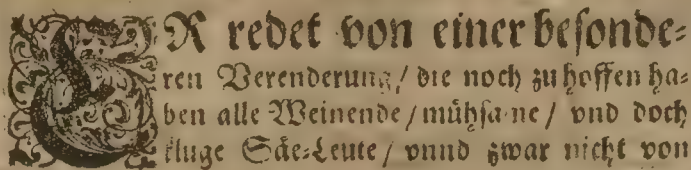 ER redet von einer besonde⸗
ren Verenderung / die noch zu hoffen ha⸗
ben alle Weinende / mühsame / vnd doch
kluge Säe⸗Leute / vnnd zwar nicht von